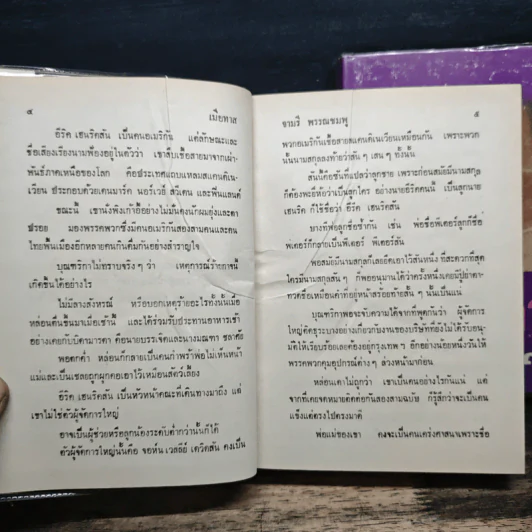 ๔
เมียทาส
อีริค เฮนริคสัน เป็นคนอเมริกัน แต่ลักษณะและ
ชื่อเสียงเรียงนามฟ้องอยู่ในตัวว่า เขาสืบเชื้อสายมาจากเผ่า
พันธุ์ภาคเหนือของโลก คือประเทศแถบแหลมสแคนดิเน
เวียน ประกอบด้วยเดนมาร์ค นอรเวย์ สวีเดน และฟินแลนด์
ขณะนั้น เขานั่งพิงเก้าอี้อย่างไม่มั่นคงนักผมยุ่งและตา
ปรอย มองพรรคพวกซึ่งมีคนอเมริกันสองสามคนและคน
ไทยพื้นเมืองอีกหลายคนกินดื่มกันอย่างสำราญ
บุณฑริกาไม่ทราบจริง ๆ ว่า เหตุการณ์ร้ายกาจนี้
เกิดขึ้นได้อย่างไร
ไม่มีลางสังหรณ์ หรือบอกเหตุร้ายอะไรทั้งนั้นเมื่อ
หล่อนตื่นขึ้นมาเมื่อเช้านี้ และได้ร่วมรับประทานอาหารเช้า
อย่างเคยกับบิดามารดา คือนายบรรเจิดและนางมณฑา
พอตกค่ำ หล่อนก็กลายเป็นคนกำพร้าพ่อไม่เห็นหน้า
แม่และเป็นเชลยถูกผูกคอเอาไว้เหมือนสัตว์เลี้ยง
อีริค เฮนริคสัน เป็นหัวหน้าคณะที่เดินทางมาถึง แต่
เขาไม่ใช่ตัวผู้จัดการใหญ่
อาจเป็นผู้ช่วยหรือลูกน้องระดับต่ำกว่านั้นก็ได้
ตัวผู้จัดการใหญ่นั้นคือ จอห์น เวสลีย์ เดวิดสัน คงเป็น
จามรี พรรณชมพู
๕
พวกอเมริกันเชื้อสายสแคนดิเนเวียนเหมือนกัน เพราะพวก
นั้นนามสกุลลงท้ายว่าสัน ๆ เสน ๆ ทั้งนั้น
สันนี้คือซันที่แปลว่าลูกชาย เพราะก่อนสมัยมีนามสกุล
ก็ต้องพะยี่ห้อว่าเป็นลูกใคร อย่างนายอีริคคนนี้ เป็นลูกนาย
เฮนริค ก็ใช้ชื่อว่า อีริค เฮนริคสัน
ทางที่พ่อลูกชื่อซ้ำกัน เช่น พ่อชื่อพีเตอร์ลูกก็ชื่อ
พีเตอร์ก็กลายเป็นพีเตอร์ พีเตอร์สัน
พอสมัยมีนามสกุลก็เลยยึดเอาไว้สันหนึ่ง ที่สะดวกที่สุด
ใครมีนามสกุลสัน ๆ ก็พออนุมานได้ว่าครั้งหนึ่งเคยมีปู่ยาตา
ทวดชื่อเหมือนคำที่อยู่หน้าสร้อยท้ายสั้น ๆ นั้นเป็นแน่
บุณฑริกาพอจับความได้จากที่พูดกันว่า ผู้จัดการ
ใหญ่ติดธุระบางอย่างเกี่ยวกับงานของบริษัทที่ยังไม่ได้รับอนุ-
มัติให้เรียบร้อยเลยต้องอยู่กรุงเทพ ฯ อีกอย่างน้อยหนึ่งวันให้
พรรคพวกคุมอุปกรณ์ต่าง ๆ ล่วงหน้ามาก่อน
หล่อนเดาไม่ถูกว่า เขาเป็นคนอย่างไรกันแน่ แต่
จากที่เคยจดหมายติดต่อกันสองสามฉบับ ก็รู้สึกว่าจะเป็นคน
แข็งแต่ตรงไปตรงมาดี
พ่อแม่ของเขา คงจะเป็นคนเคร่งศาสนาเพราะชื่อ